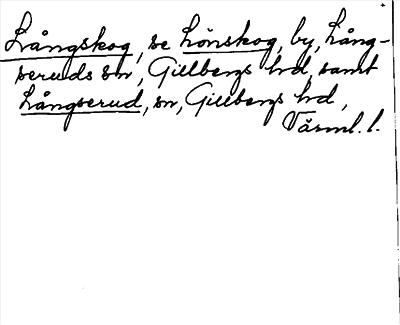 Långskog, se Lönskog, by, Lång-
seruds sn, Gillbergs hd, samt
Långserud, sn, Gillbergs hd,
Värml. l.